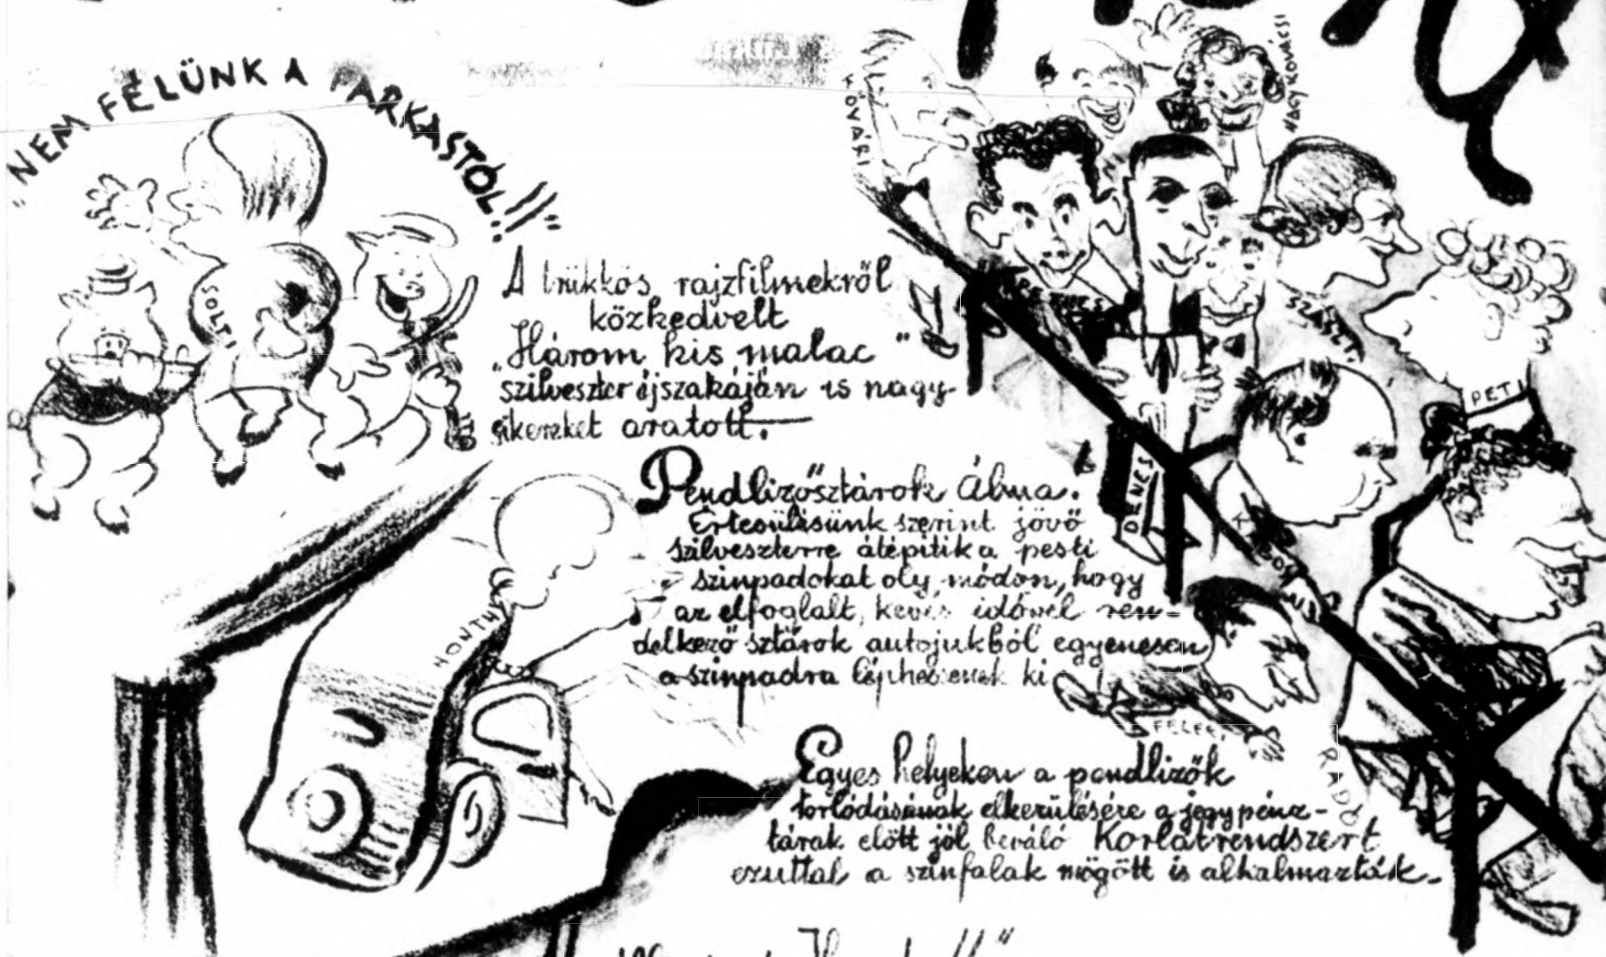 "NEM FÉLÜNK A FARKASTÓL!!"
SOLTI
A trükkös rajzfilmekről
közkedvelt
„Három kis malac"
szilveszter éjszakáján is nagy
sikereket aratott.
Pendlizősztárok Álma.
Értesülésünk szerint jövő
szilveszterre átépítik a pesti
szinpadokat oly módon, hogy
az elfoglalt, kevés idővel ren-
delkező sztárok autojukból egyenesen
a szinpadra léphessenek ki
HONTHY
Egyes helyeken a pendlizők
torlódásának elkerülésére a jegypénz-
tárak előtt jól beváló Korlátrendszert
ezuttal a szinfalak mögött is alkalmazták.
KŐVÁRI
NAGYKOVÁCSI
SZÁSZ
PETI
DÉNES
RADÓ